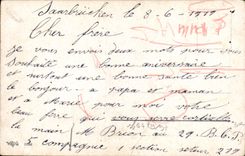 Saarbrücken le 8-6-1919
Cher frère
je vous envois deux mots pour vous
souhaité une bonne aniversaire
et surtout une bonne santé bien
le bonjour a papa et maman
et a Marie pour moi votre
beau frère qui vous serre
la main M au 29. B.C.P
2e compagnie 1 section secteur